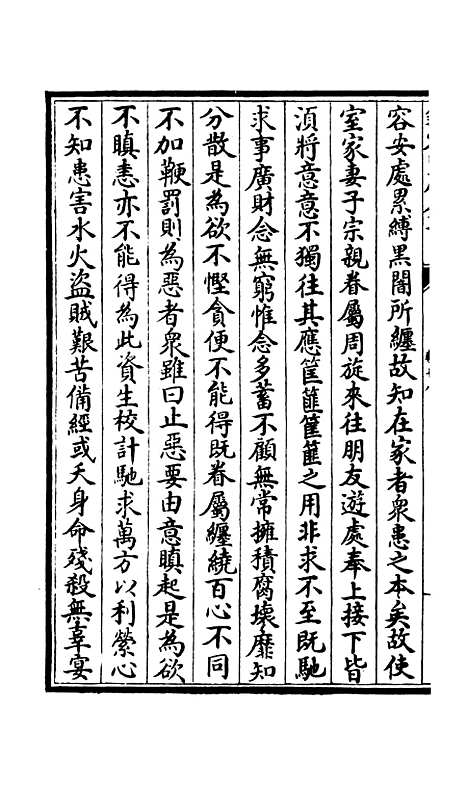 容安處累縛黑闇所纏故知在家者衆患之本矣故使
室家妻子宗親眷屬周旋來往朋友遊處奉上接下皆
湏將意意不獨往其應筐篚篚之用非求不至既馳
求事廣財念無窮惟念多蓄不顧無常擁積腐壊靡知
分散是為欲不慳貪便不能得既眷屬纏繞百心不同
不加鞭罰則為惡者衆雖曰止惡要由意瞋起是為欲
不瞋恚亦不能得為此資生校計馳求萬方以利縈心
不知患害水火盜賊艱苦備經或夭身命殘殺無辜宴